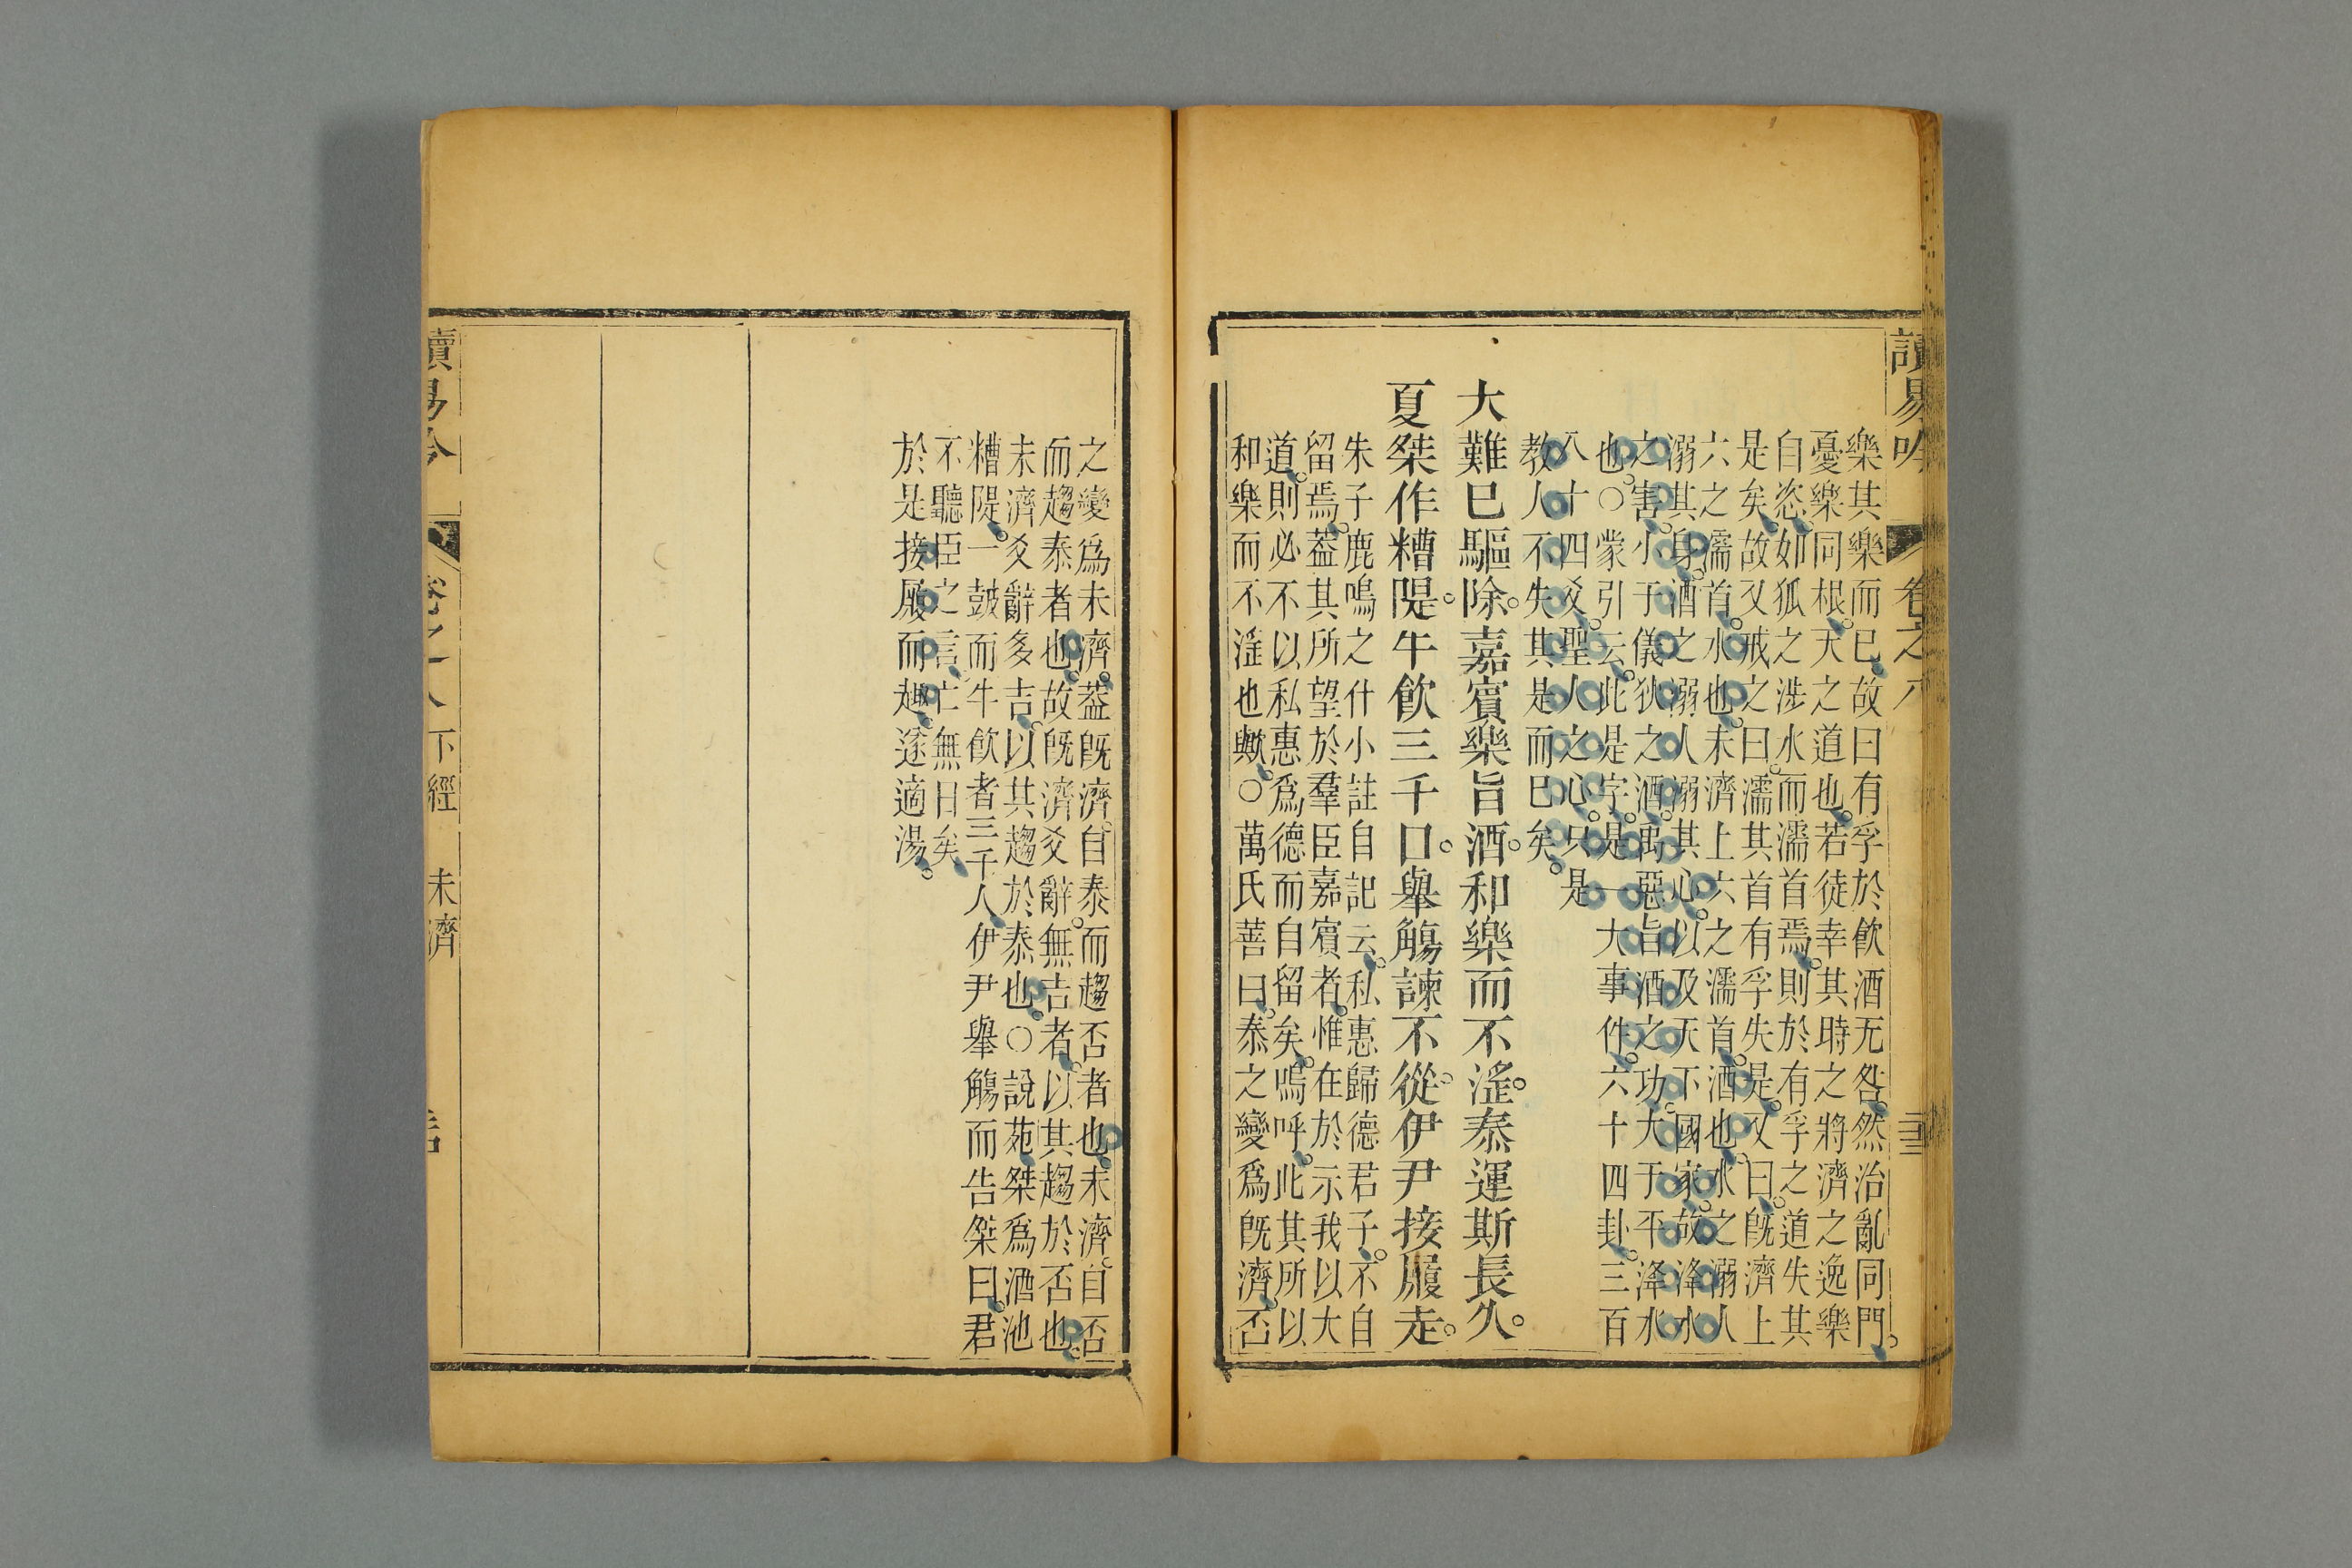 讀易吟 卷之八 三三
樂其樂而已故曰有孚於飲酒无咎然治亂同門。
憂樂同根。天之道也。若徒幸其時之將濟之逸樂
自恣。如狐之涉水而濡首焉。則於有孚之道失其
是矣。故又戒之曰。濡其首有孚失是。又曰。既濟上
六之濡首。水也。未濟上六之濡首。酒也。水之溺人
溺其身。酒之溺人溺其心。以及天下國家。故洚水
之害。小于儀狄之酒。禹惡旨酒之功。大于平洚水
也。○蒙引云。此是字。是一大事件。六十四卦。三百
八十四爻。聖人之心。只是
教人不失其是而已矣。
大難已驅除。嘉賓樂旨酒。和樂而不淫。泰運斯長久。
夏桀作糟隄。牛飲三千口。舉觴諫不從。伊尹接履走。
朱子鹿鳴之什小註自記云。私惠歸德君子。不自
留焉。葢其所望於羣臣嘉賓者。惟在於示我以大
道。則必不以私惠爲德而自留矣。嗚呼。此其所以
和樂而不淫也歟。○萬氏善曰。泰之變爲既濟。否
之變爲未濟。葢既濟。自泰。而趨否者也。未濟。自否
而趨泰者也。故既濟爻辭無吉者。以其趨於否也。
未濟爻辭多吉。以其趨於泰也。○說苑。桀爲酒池
糟隄。一鼓而牛飲者三千人。伊尹舉觴而告桀曰。君
不聽臣之言。亡無日矣。
於是接履而趣。遂適湯。
讀易吟 下經 未濟